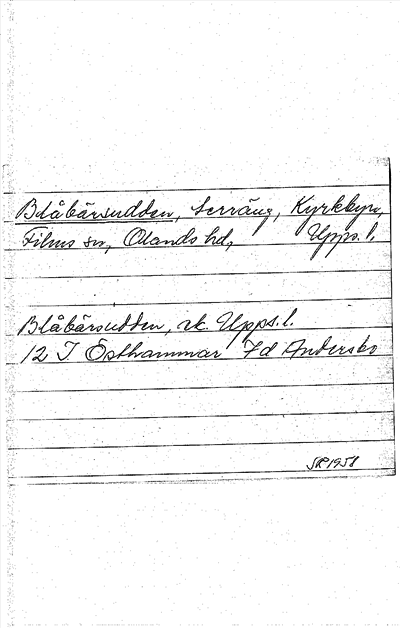 Blåbärsudden, terräng, Kyrkbyn,
Films sn, Olands hd, Upps. l.
Blåbärsudden, ek. Upps. l.
12 I Östhammar 7d Andersbo
1958